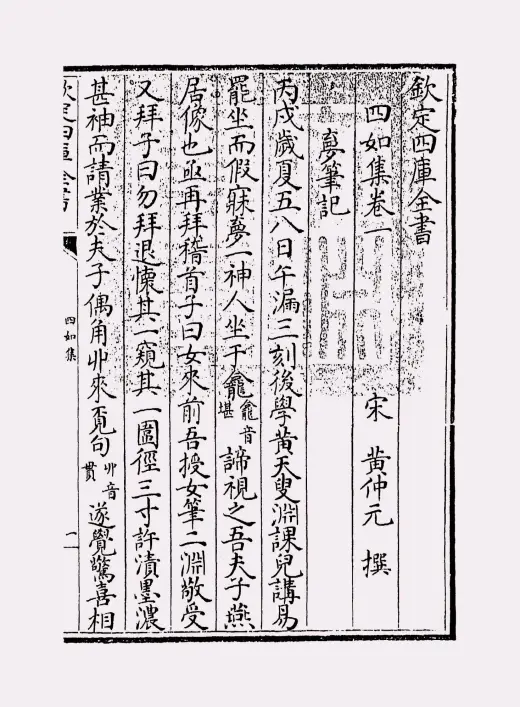 欽定四庫全書
四如集卷一
宋 黃仲元 撰
夢筆記
丙戌歲夏五八日午漏三刻後學黃天叟淵課兒講易
罷坐而假寐夢一神人坐于龕龕音堪諦視之吾夫子燕
居像也亟再拜稽首子曰女來前吾授女筆二淵敬受
又拜子曰勿拜退懷其一窺其一圍徑三寸許漬墨濃
甚袖而請業於夫子偶角丱來覓句丱音貫遂覺驚喜相
欽定四庫全書
四如集
一